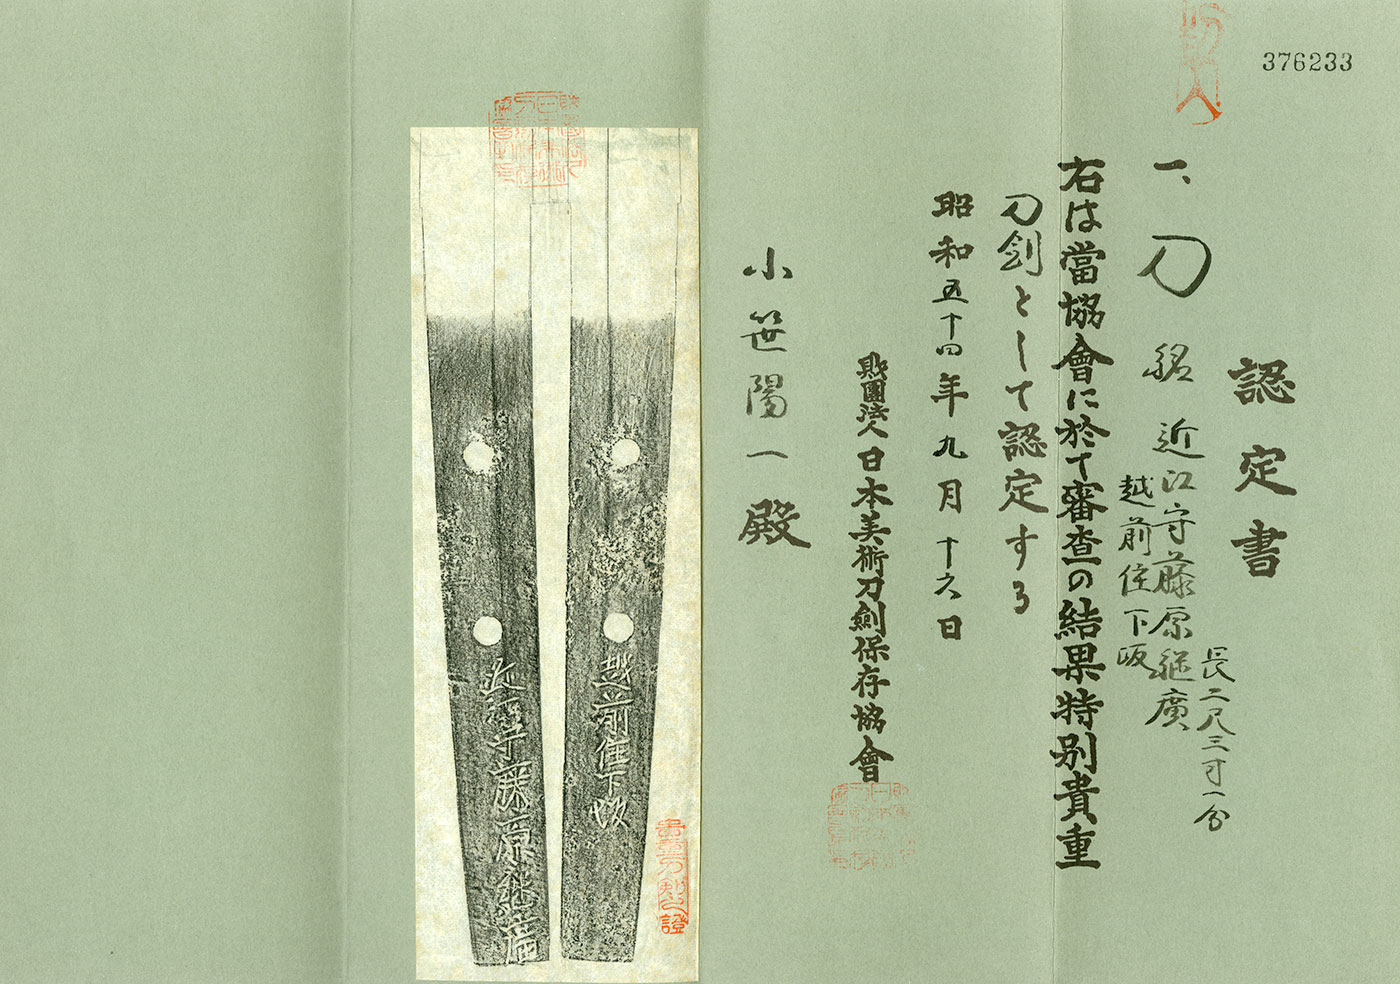 376233
認定書
一、刀 銘 近江守藤原継廣
越前住下坂
長二尺三寸一分
右は當協會に於て審査の結果特別貴重
刀剣として認定する
昭和五十四年九月十六日
財團法人日本美術刀劍保存協會
小笹陽一殿
越前住下坂
近江守藤原継廣